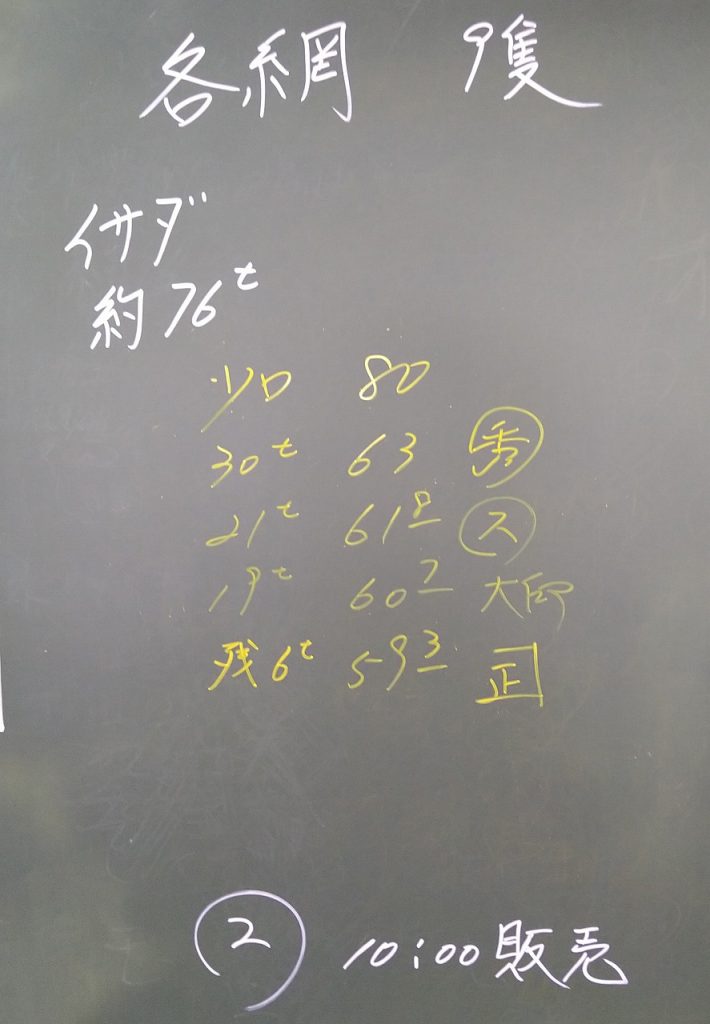 各網 9隻
イサダ
約76t
少口 80
30t 63 秀
21t 618 ス
19t 607 大印
残6t 593 正
② 10:00販売